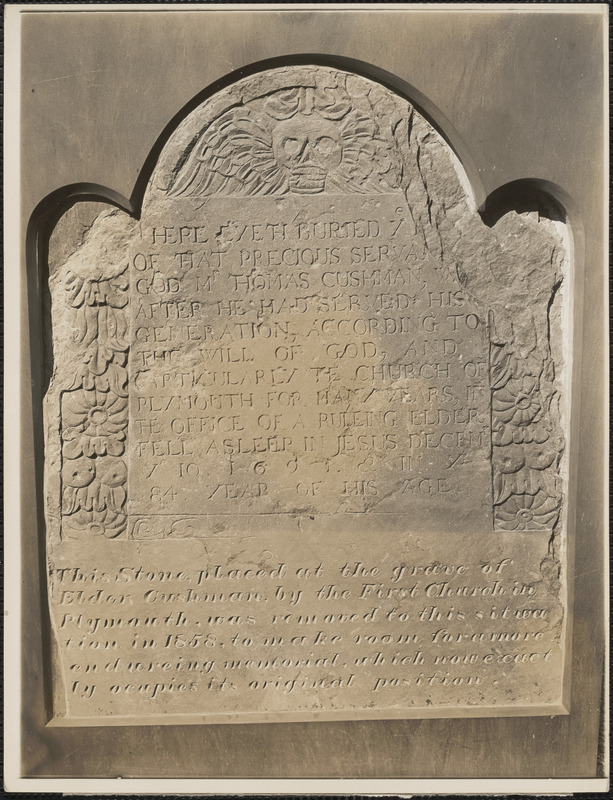 HERE LYETH BURIED Yᵉ
OF THAT PRECIOUS SERVA
GOD Mʳ THOMAS CUSHMAN,
AFTER HE HAD SERVED HIS
GENERATION, ACCORDING TO
THE WILL OF GOD, AND
PARTICULARLY THE CHURCH OF
PLYMOUTH FOR MANY YEARS IN
THE OFFICE OF A RULEING ELDER
FELL ASLEEP IN JESUS DECEM
Yᵉ 10 169 & IN Yᵉ
84 YEAR OF HIS AGE
This Stone, placed at the grave of
Elder Cushman, by the First Church in
Plymouth, was removed to this situa
tion in 1858, to make room for a more
endureing memorial, which now exact
ly ocupies its original position.